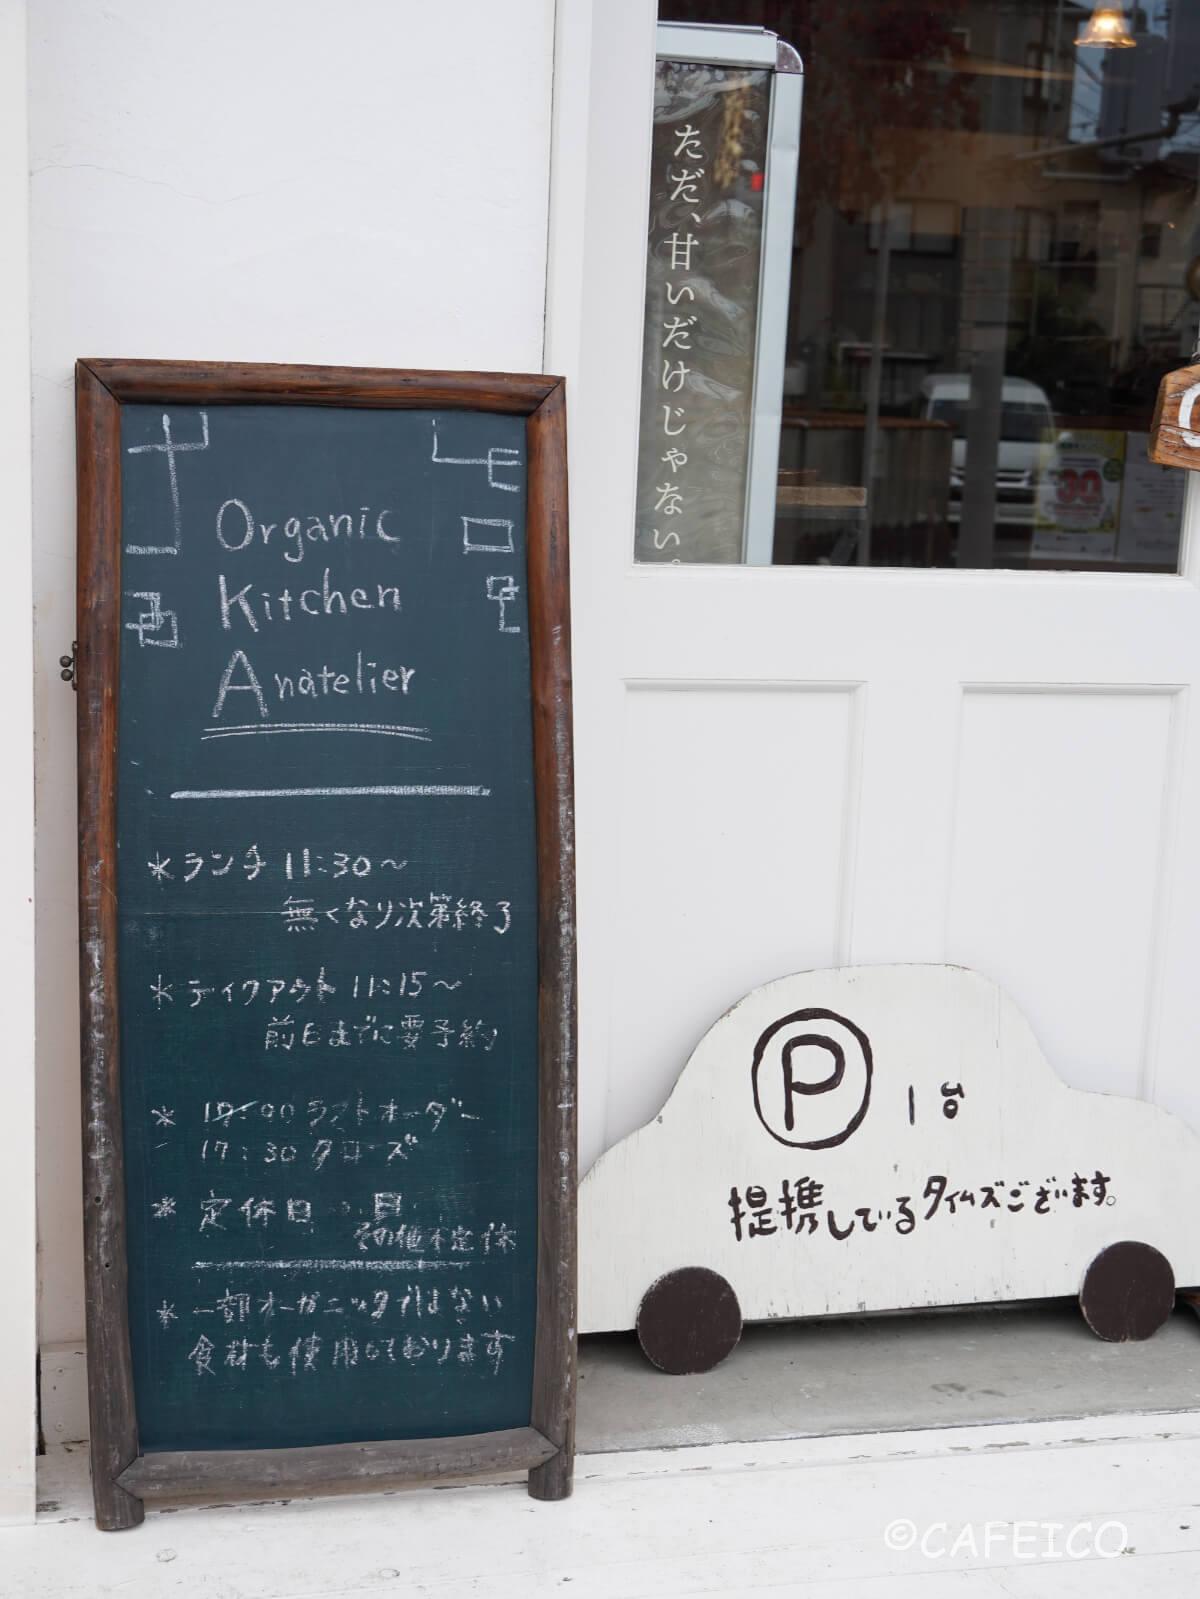 Organic
Kitchen
Anatelier
*ランチ 11:30〜
無くなり次第終了
*テイクアウト 11:15〜
前日までに要予約
* 17:00 ラストオーダー
17:30 クローズ
* 定休日 日
その他不定休
* 一部オーガニックではない
食材も使用しております
ただ、甘いだけじゃない。
30
P 1台
提携しているタイムズございます。
©CAFEICO